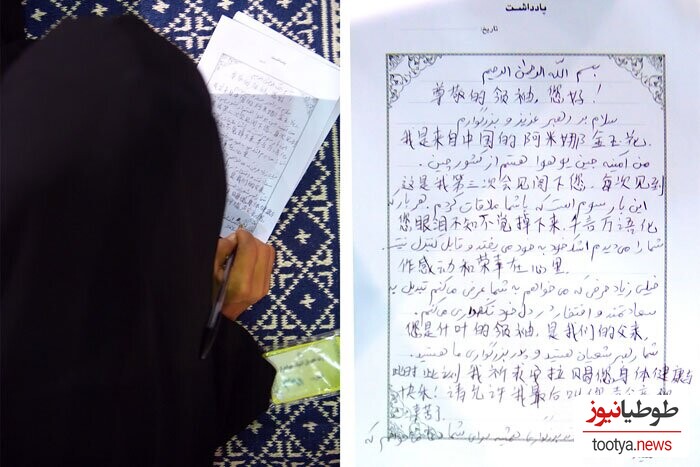 یادداشت
تاریخ:
بسم الله الرحمن الرحیم
尊敬的领袖，您好！
سلام بر رهبر عزیز و بزرگوارم
我是来自中国的阿米娜金玉花.
من آمنه جین یو هوا هستم از کشور چین.
这是我第三次会见阁下您，每次见到
این بار سوم است که با شما ملاقات کردم. هر بار که
您，眼泪不知不觉掉下来，千言万语化
شما را می‌دیدم اشک خود به خود می‌ریختند و قابل کنترل نیستند
作感动和荣幸在心里.
خیلی زیاد حرف که می‌خواهم به شما عرض می‌کنم تبدیل به
سعادتمند و افتخار در دل خود نگهداری می‌کنم.
您是什叶的领袖，是我们的父亲，
شما رهبر شیعیان هستید و پدر بزرگواری ما هستید.
此时此刻我祈求安拉赐您身体健康与
快乐！请允许我最后叫您
طوطیانیوز
tootya.news